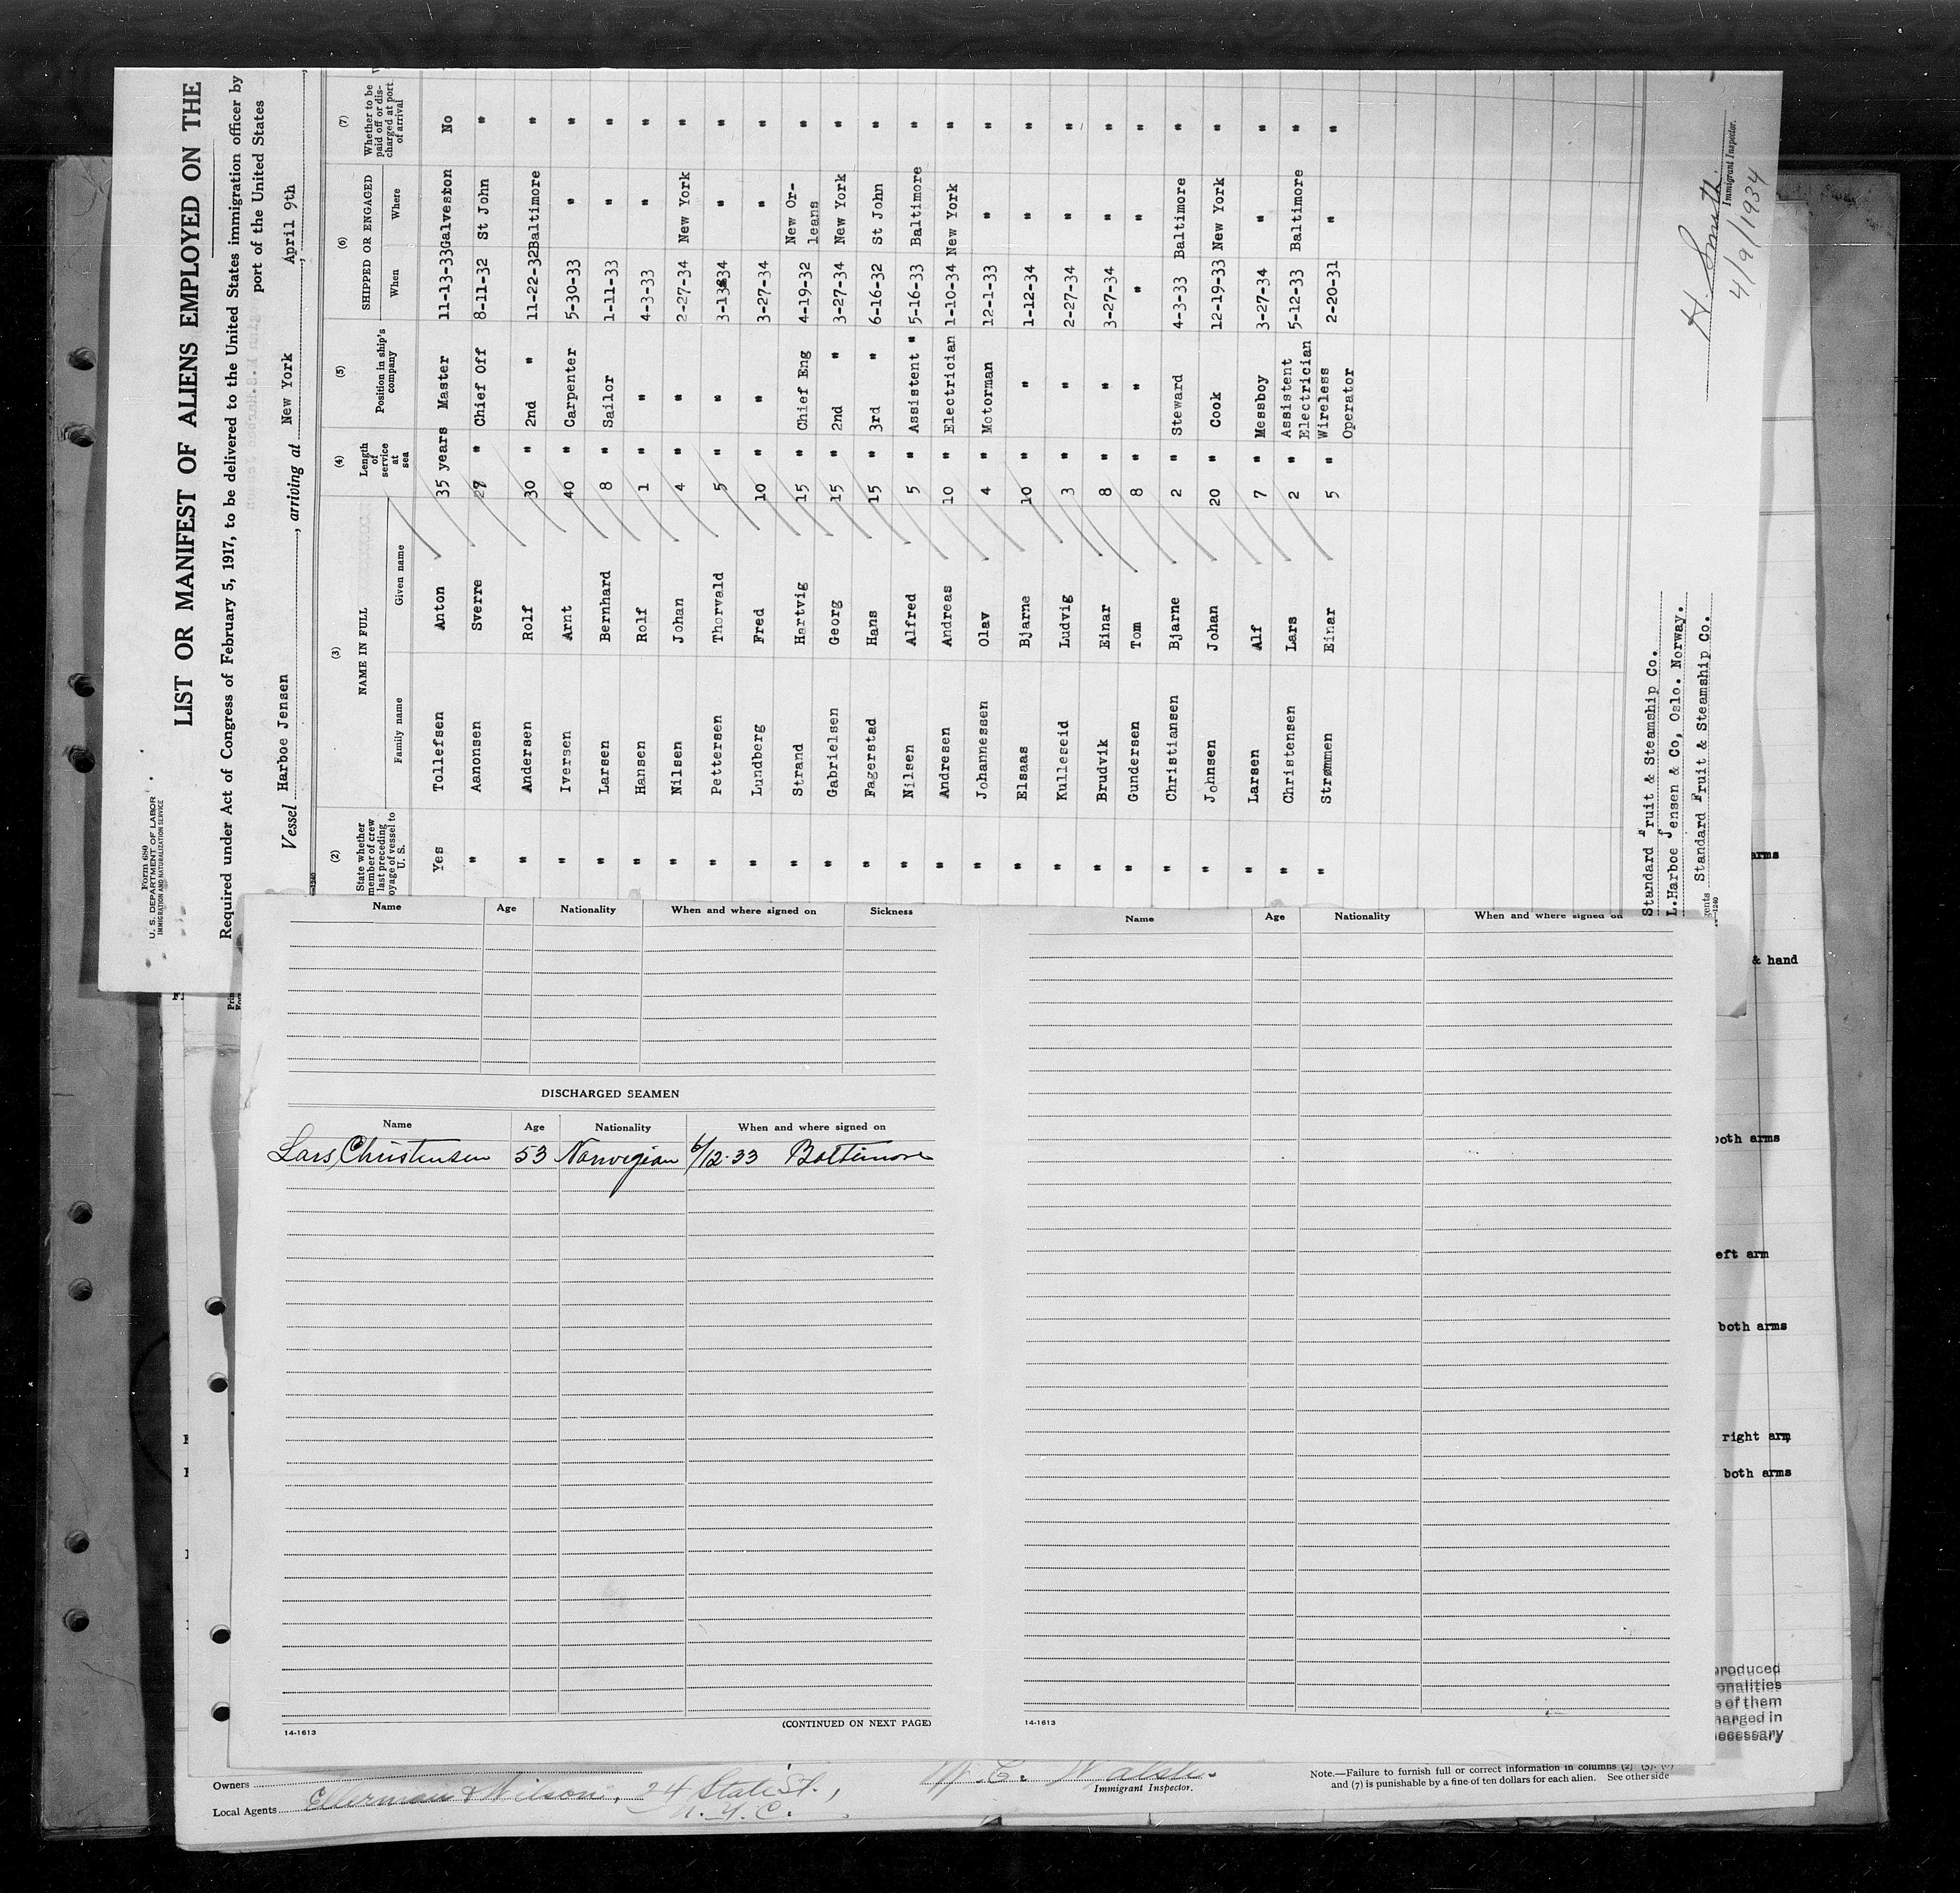 Form 680
U. S. DEPARTMENT OF LABOR
IMMIGRATION AND NATURALIZATION SERVICE
LIST OR MANIFEST OF ALIENS EMPLOYED ON THE
Required under Act of Congress of February 5, 1917, to be delivered to the United States immigration officer by
port of the United States
Vessel Harboe Jensen, arriving at New York April 9th,
(2) (3) (4) (5) (6) (7)
State whether member of crew last preceding oyage of vessel to U. S. NAME IN FULL Length of service at sea Position in ship's company SHIPPED OR ENGAGED Whether to be paid off or dis- charged at port of arrival
Family name Given name When Where
Yes Tollefsen Anton 35 years Master 11-13-33 Galveston No
" Aanonsen Sverre " Chief Off 8-11-32 St John "
" Andersen Rolf 30 " 2nd " 11-22-32 Baltimore "
" Iversen Arnt 40 " Carpenter 5-30-33 " "
" Larsen Bernhard 8 " Sailor 1-11-33 " "
" Hansen Rolf 1 " " 4-3-33 " "
" Nilsen Johan 4 " " 2-27-34 New York "
" Pettersen Thorvald 5 " " " "
" Lundberg Fred 10 " " 3-27-34 " "
" Strand Hartvig 15 " Chief Eng 4-19-32 New Or- leans "
" Gabrielsen Georg 15 " 2nd " 3-27-34 New York "
" Fagerstad Hans 15 " 3rd " 6-16-32 St John "
" Nilsen Alfred 5 " Assistent " 5-16-33 Baltimore "
" Andresen Andreas 10 " Electrician 1-10-34 New York "
" Johannessen Olav 4 " Motorman 12-1-33 " "
" Elsaas Bjarne 10 " " 1-12-34 " "
" Kulleseid Ludvig 3 " " 2-27-34 " "
" Brudvik Einar 8 " " 3-27-34 " "
" Gundersen Tom 8 " " " " "
" Christiansen Bjarne 2 " Steward 4-3-33 Baltimore "
" Johnsen Johan 20 " Cook 12-19-33 New York "
" Larsen Alf 7 " Messboy 3-27-34 " "
" Christensen Lars 2 " Assistent Electrician 5-12-33 Baltimore "
" Strømmen Einar 5 " Wireless Operator 2-20-31 " "
Standard Fruit & Steamship Co.
L.Harboe Jensen & Co, Oslo. Norway.
gents Standard Fruit & Steamship Co.
H. Smith
Immigrant Inspector.
4/9/1934
Name Age Nationality When and where signed on Sickness
DISCHARGED SEAMEN
Name Age Nationality When and where signed on
Lars Christensen 53 Norwegian 5/12-33 Baltimore
14-1613 (CONTINUED ON NEXT PAGE)
Name Age Nationality When and where signed on
14-1613
arms
& hand
both arms
eft arm
both arms
right arm
both arms
produced
onalities
e of them
harged in
necessary
Owners
Local Agents Ellerman & Wilson, 24 State St.,
N. Y. C.
W. E. Walsh
Immigrant Inspector.
Note.—Failure to furnish full or correct information in columns (2) (5), (6)
and (7) is punishable by a fine of ten dollars for each alien. See other side